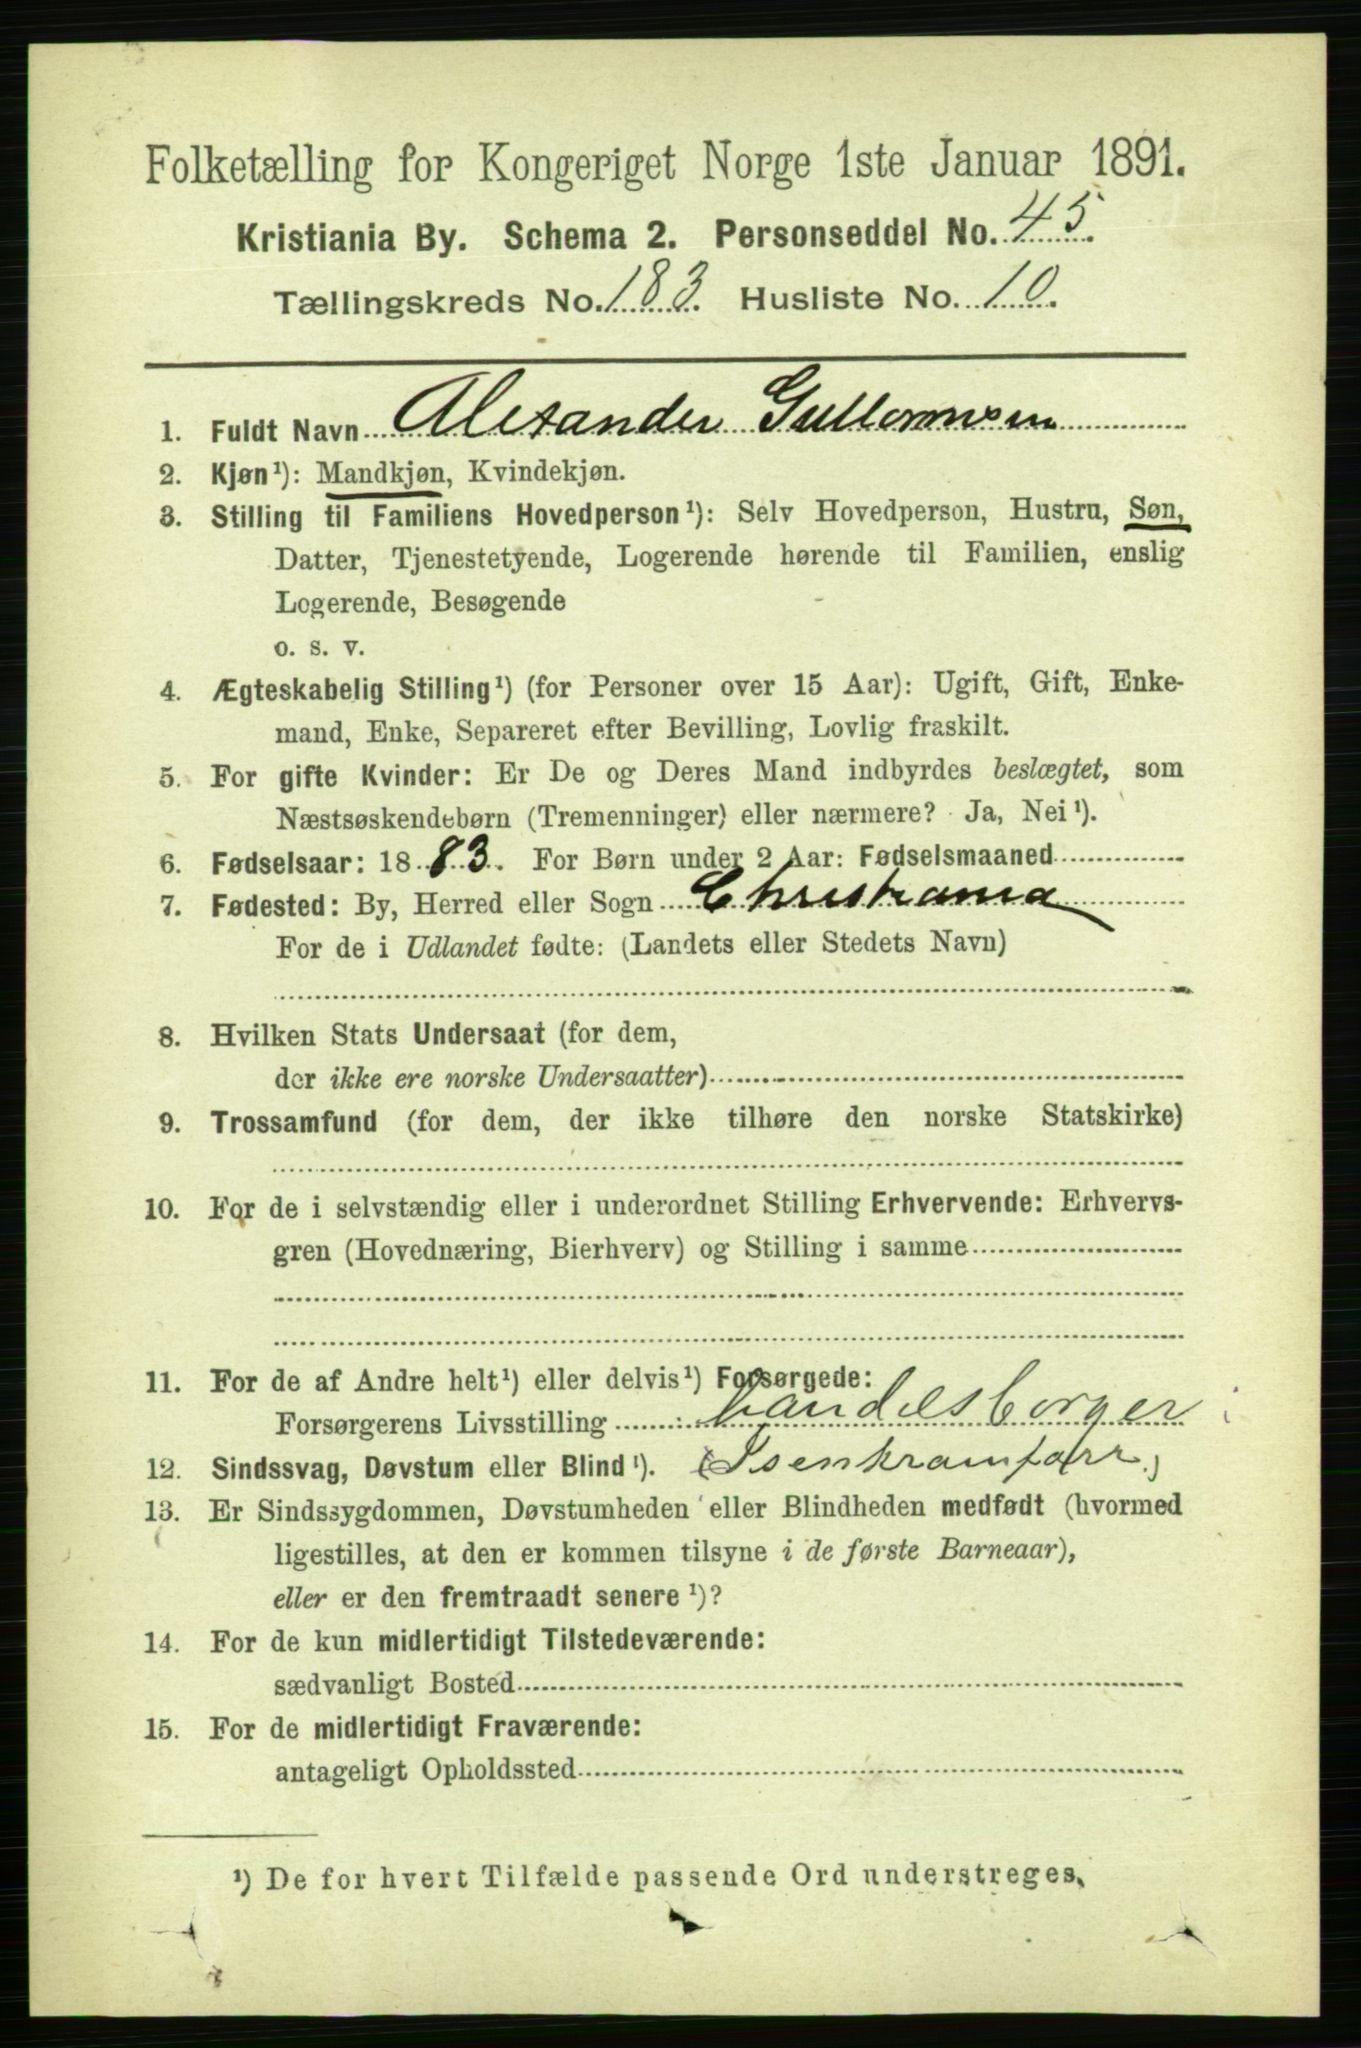 Folketælling for Kongeriget Norge 1ste Januar 1891.
Kristiania By. Schema 2. Personseddel No. 45.
Tællingskreds No. 183. Husliste No. 10.
1. Fuldt Navn Alexander Gullormsen
2. Kjøn¹): Mandkjøn, Kvindekjøn.
3. Stilling til Familiens Hovedperson¹): Selv Hovedperson, Hustru, Søn,
Datter, Tjenestetyende, Logerende hørende til Familien, enslig
Logerende, Besøgende
o. s. v.
4. Ægteskabelig Stilling¹) (for Personer over 15 Aar): Ugift, Gift, Enke-
mand, Enke, Separeret efter Bevilling, Lovlig fraskilt.
5. For gifte Kvinder: Er De og Deres Mand indbyrdes beslægtet, som
Næstsøskendebørn (Tremenninger) eller nærmere? Ja, Nei¹).
6. Fødselsaar: 1883. For Børn under 2 Aar: Fødselsmaaned
7. Fødested: By, Herred eller Sogn Christiania
For de i Udlandet fødte: (Landets eller Stedets Navn)
8. Hvilken Stats Undersaat (for dem,
der ikke ere norske Undersaatter)
9. Trossamfund (for dem, der ikke tilhøre den norske Statskirke)
10. For de i selvstændig eller i underordnet Stilling Erhvervende: Erhvervs-
gren (Hovednæring, Bierhverv) og Stilling i samme
11. For de af Andre helt¹) eller delvis¹) Forsørgede:
Forsørgerens Livsstilling handelsborger i
12. Sindssvag, Døvstum eller Blind¹). (Isenkramforr.)
13. Er Sindssygdommen, Døvstumheden eller Blindheden medfødt (hvormed
ligestilles, at den er kommen tilsyne i de første Barneaar),
eller er den fremtraadt senere¹)?
14. For de kun midlertidigt Tilstedeværende:
sædvanligt Bosted
15. For de midlertidigt Fraværende:
antageligt Opholdssted
¹) De for hvert Tilfælde passende Ord understreges.